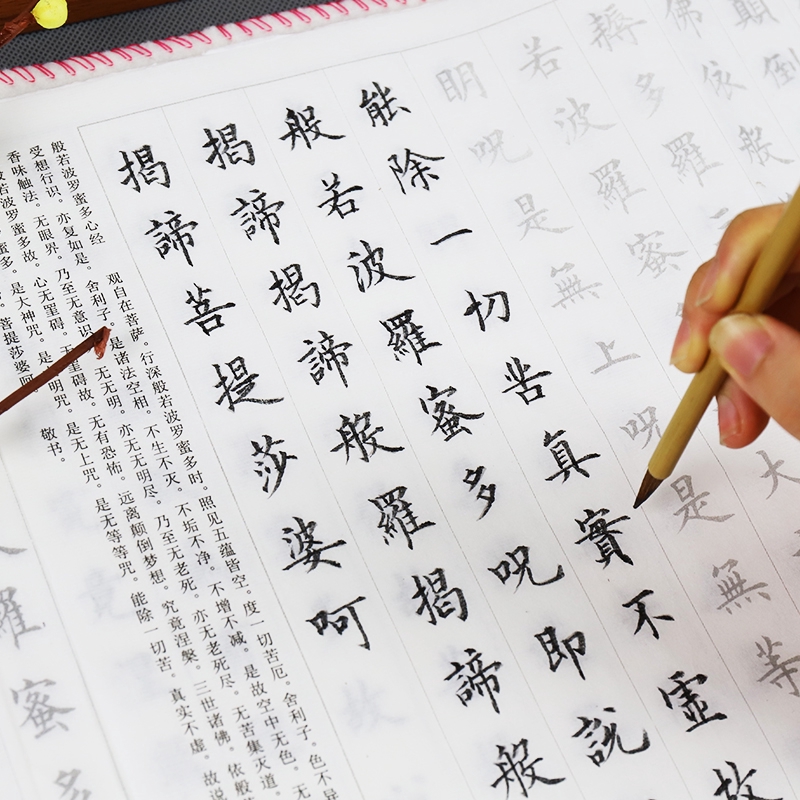 顛倒
佛依般
耨多羅
若波羅蜜
大
明呪是無上呪是無等
能除一切苦真實不虛故
般若波羅蜜多呪即說
揭諦揭諦般羅揭諦般
揭諦菩提莎婆呵
般若波罗蜜多心经 观自在菩萨。行深般若波罗蜜多时。照见五蕴皆空。度一切苦厄。舍利子。色不异
受想行识。亦复如是。舍利子。是诸法空相。不生不灭。不垢不净。不增不减。是故空中无色。无
香味触法。无眼界。乃至无意识 无无明。亦无无明尽。乃至无老死。亦无老死尽。无苦集灭道。
般若波罗蜜多故。心无里碍。无里碍故。无有恐怖。远离颠倒梦想。究竟涅槃。三世诸佛。依般
蜜多。是大神咒。是 明咒。是无上咒。是无等等咒。能除一切苦。真实不虚。故说
菩提莎婆呵 敬书。
羅蜜多